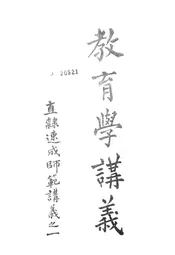 教育學講義
直隸速成師範講義之一